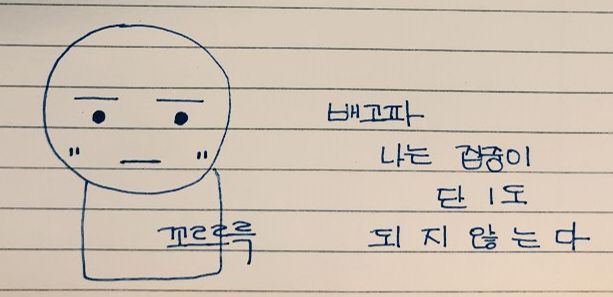 배고파
나는 집중이
단 1도
되지 않는다
꼬르르륵